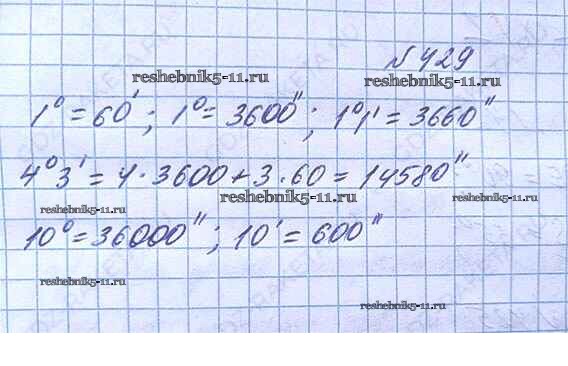 №429
reshebnik5-11.ru
reshebnik5-11.ru
1° = 60'; 1° = 3600"; 1°1' = 3660"
4°3' = 4·3600+3·60 = 14580"
reshebnik5-11.ru
reshebnik5-11.ru
reshebnik5-11.ru
10° = 36000"; 10' = 600"
reshebnik5-11.ru
reshebnik5-11.ru